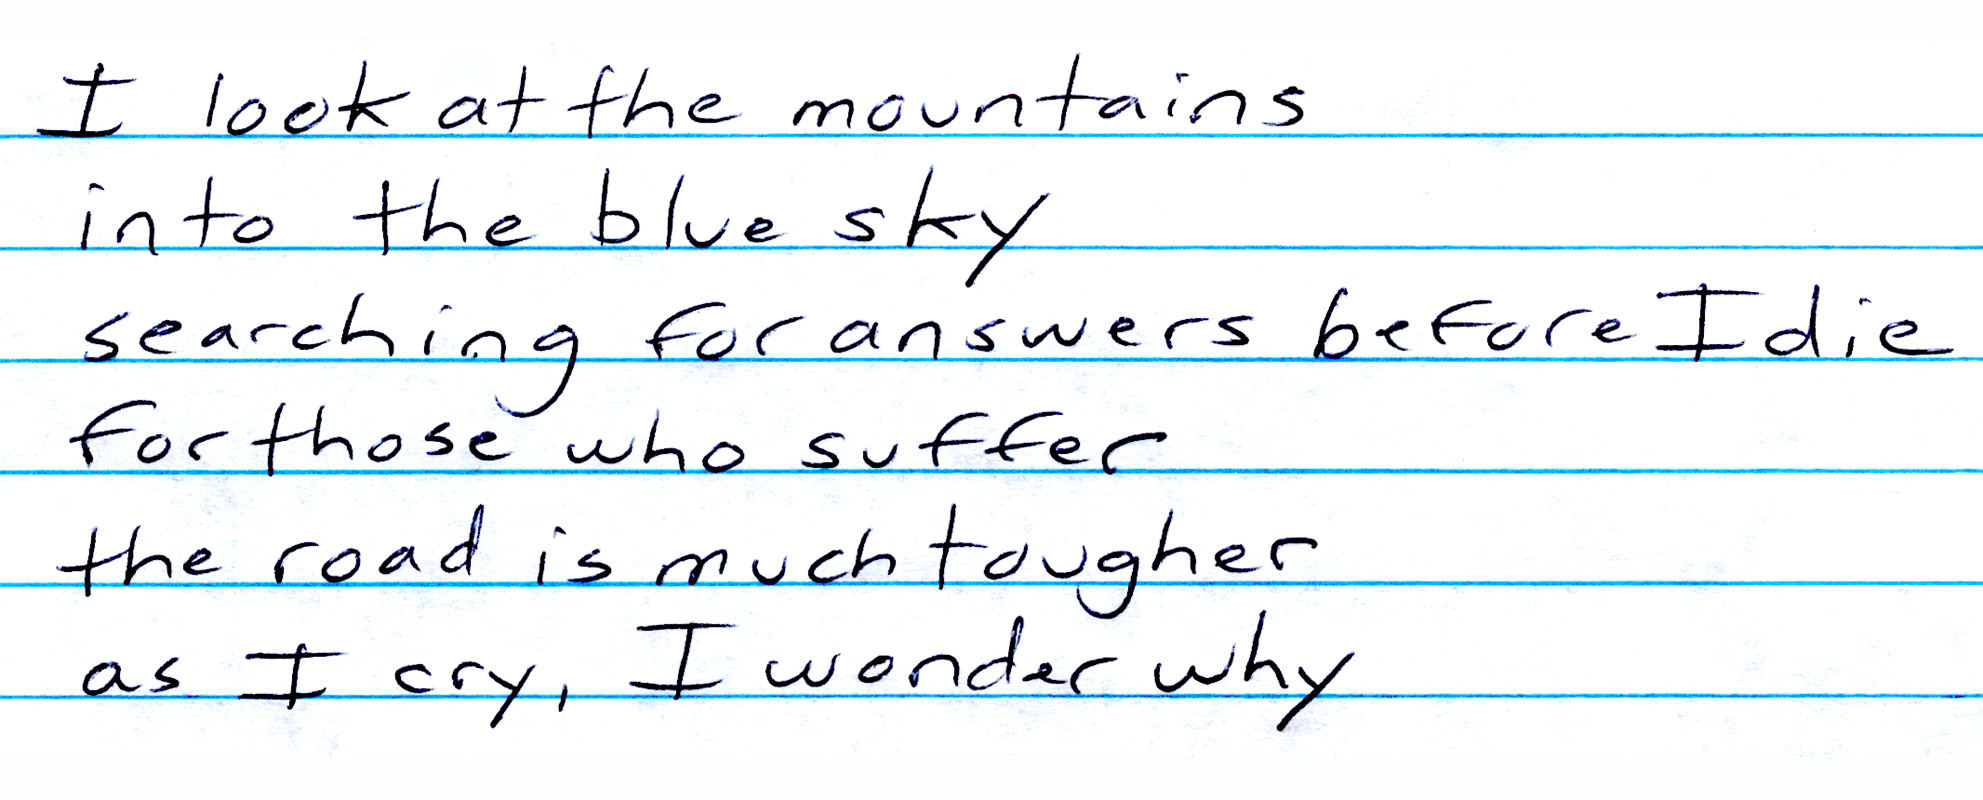 I look at the mountains
into the blue sky
searching for answers before I die
for those who suffer
the road is much tougher
as I cry, I wonder why